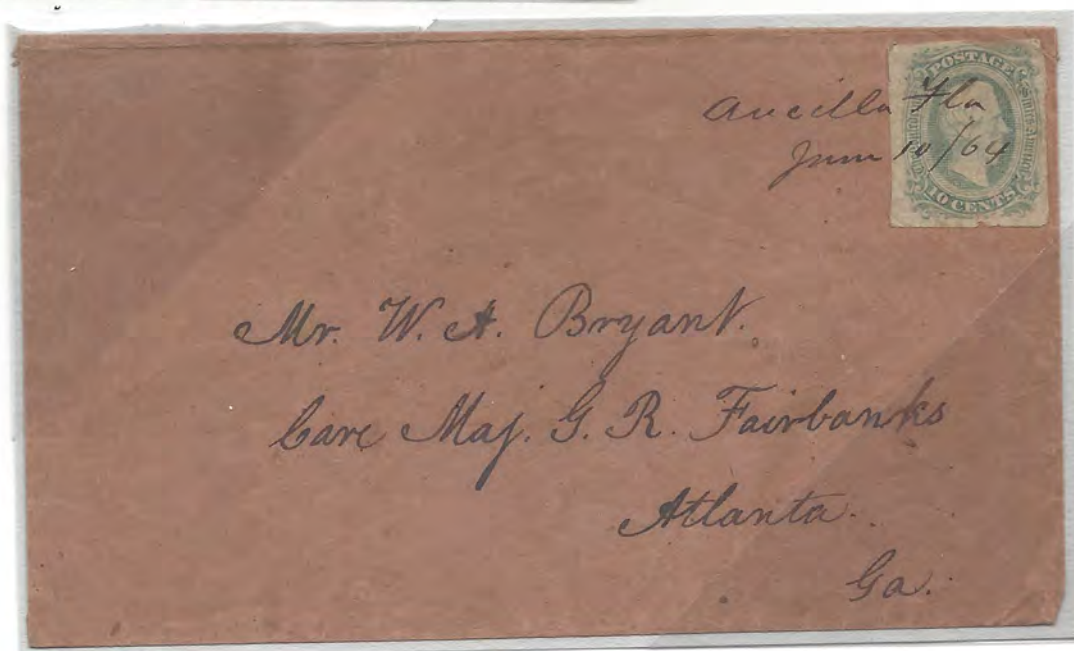 Aucilla Fla
June 10/64
POSTAGE
10 CENTS
Mr. W. A. Bryant.
Care Maj. G. R. Fairbanks
Atlanta.
Ga.